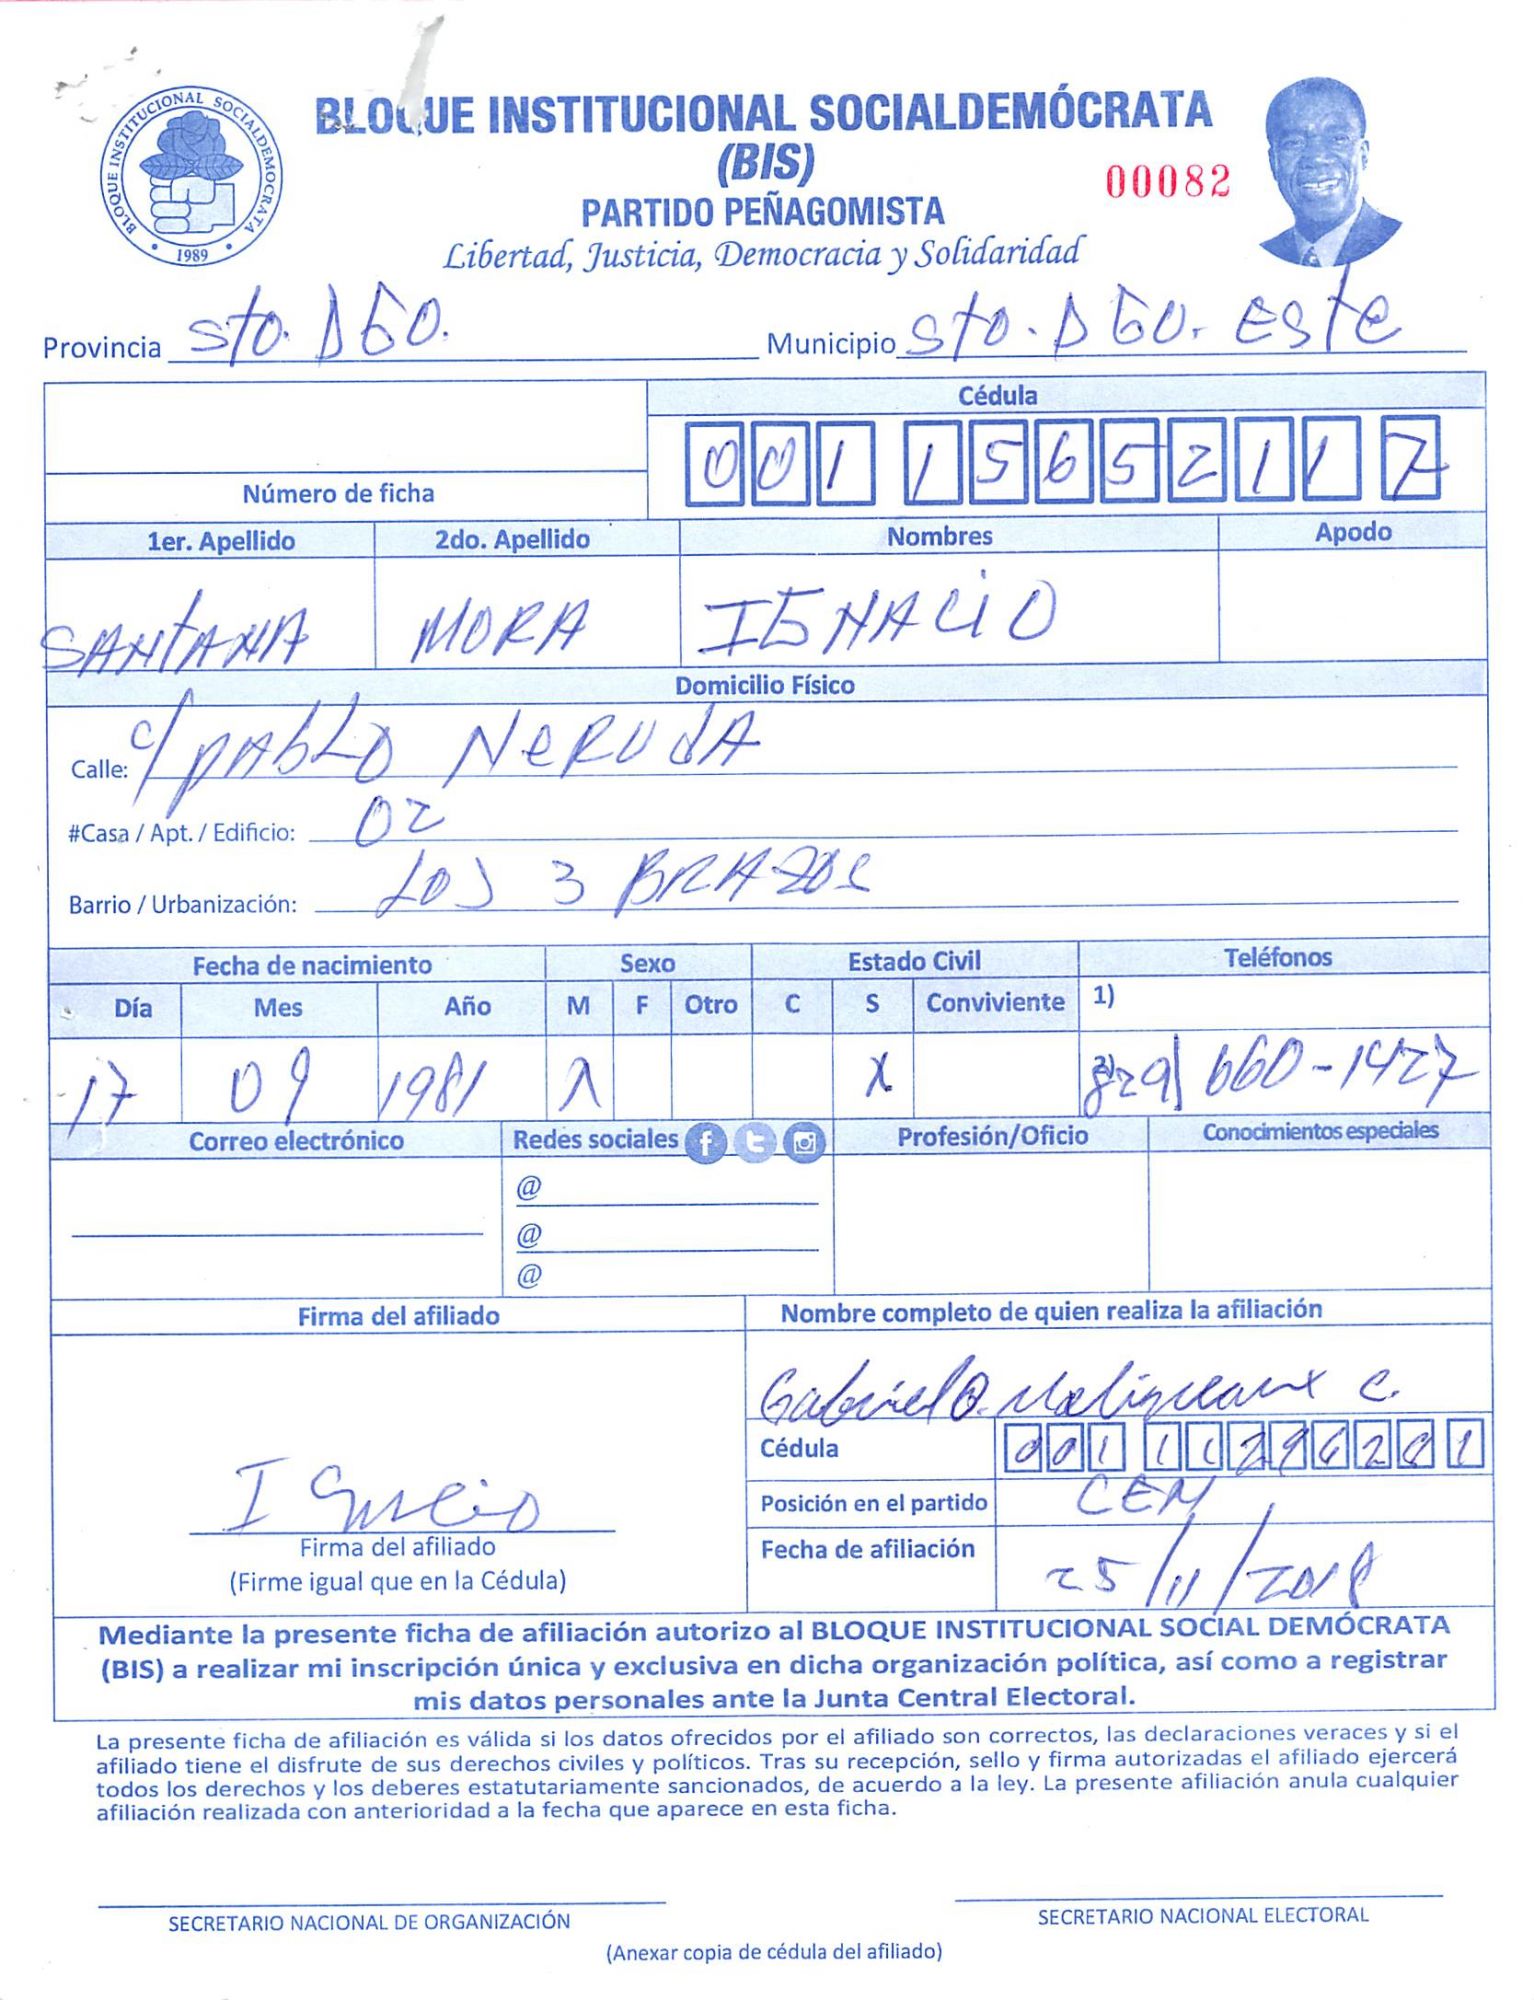 BLOQUE INSTITUCIONAL SOCIALDEMOCRATA
1989
BLOQUE INSTITUCIONAL SOCIALDEMÓCRATA
(BIS)
00082
PARTIDO PEÑAGOMISTA
Libertad, Justicia, Democracia y Solidaridad
Provincia Sto. DGO. Municipio Sto. DGO. ESTE
Cédula
001 1565211 7
Número de ficha
1er. Apellido 2do. Apellido Nombres Apodo
SANTANA MORA IGNACIO
Domicilio Físico
Calle: c/ PABLO NERUDA
#Casa / Apt. / Edificio: 02
Barrio / Urbanización: LOS 3 BRAZOS
Fecha de nacimiento Sexo Estado Civil Teléfonos
Día Mes Año M F Otro C S Conviviente 1)
17 09 1981 X X 2) 829) 660-1427
Correo electrónico Redes sociales Profesión/Oficio Conocimientos especiales
@
@
@
Firma del afiliado Nombre completo de quien realiza la afiliación
Gabriel O. C.
Cédula 001 1129628 1
Posición en el partido CEN
Ignacio
Firma del afiliado
(Firme igual que en la Cédula)
Fecha de afiliación 25/11/2018
Mediante la presente ficha de afiliación autorizo al BLOQUE INSTITUCIONAL SOCIAL DEMÓCRATA
(BIS) a realizar mi inscripción única y exclusiva en dicha organización política, así como a registrar
mis datos personales ante la Junta Central Electoral.
La presente ficha de afiliación es válida si los datos ofrecidos por el afiliado son correctos, las declaraciones veraces y si el
afiliado tiene el disfrute de sus derechos civiles y políticos. Tras su recepción, sello y firma autorizadas el afiliado ejercerá
todos los derechos y los deberes estatutariamente sancionados, de acuerdo a la ley. La presente afiliación anula cualquier
afiliación realizada con anterioridad a la fecha que aparece en esta ficha.
SECRETARIO NACIONAL DE ORGANIZACIÓN SECRETARIO NACIONAL ELECTORAL
(Anexar copia de cédula del afiliado)